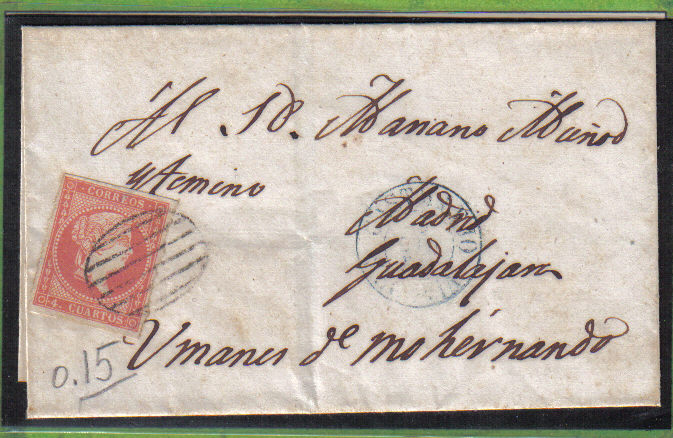 Al Sr. D. Mariano Muñoz
CORREOS
Madrid
Guadalajara
4 CUARTOS
Umanes de Mohernando
0.15